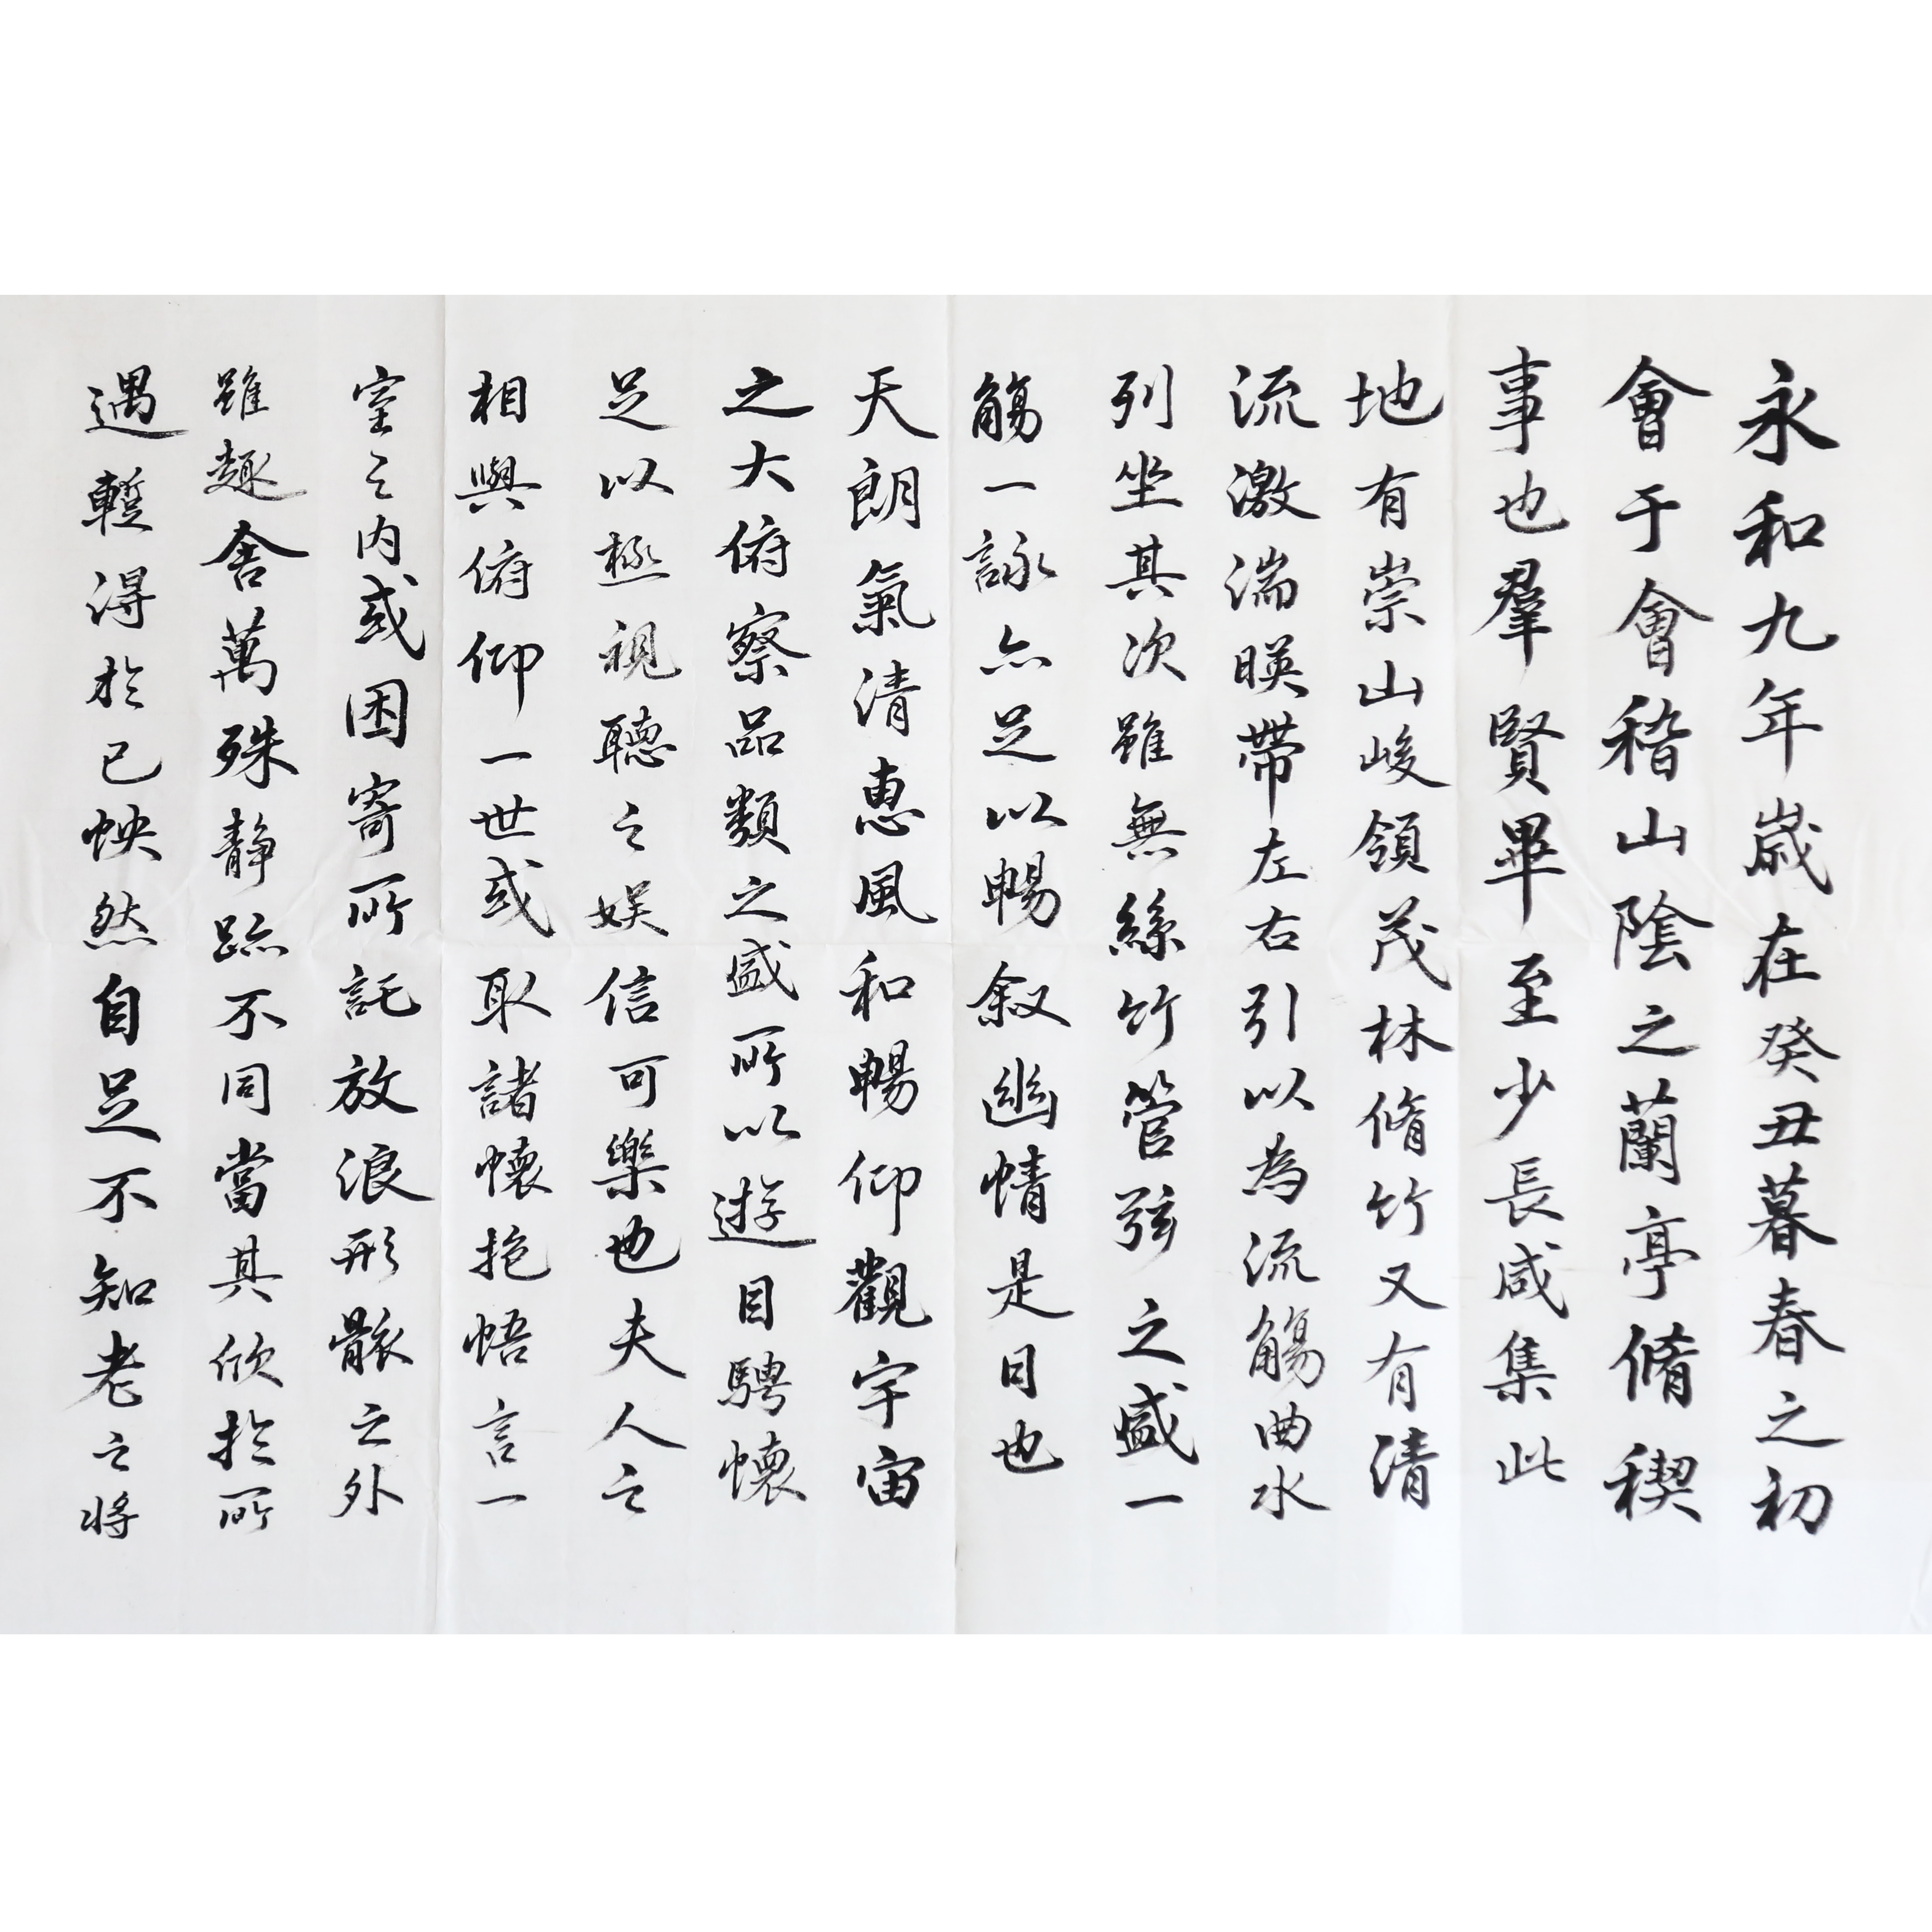 永和九年歲在癸丑暮春之初
會于會稽山陰之蘭亭脩稧
事也羣賢畢至少長咸集此
地有崇山峻領茂林脩竹又有清
流激湍暎帶左右引以為流觴曲水
列坐其次雖無絲竹管弦之盛一
觴一詠亦足以暢叙幽情是日也
天朗氣清惠風和暢仰觀宇宙
之大俯察品類之盛所以遊目騁懷
足以極視聽之娱信可樂也夫人之
相與俯仰一世或取諸懷抱悟言一
室之内或因寄所託放浪形骸之外
雖趣舍萬殊静躁不同當其欣於所
遇蹔得於己怏然自足不知老之將